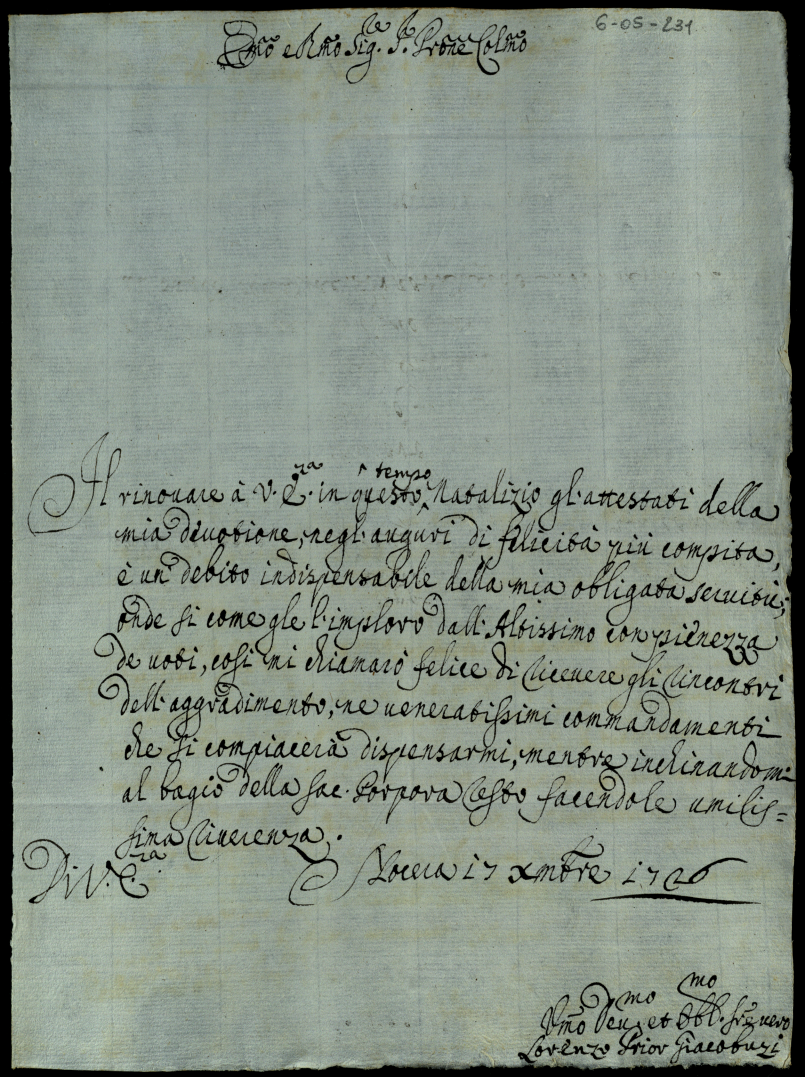 6-05-231
Emõ e Rmõ Sig.re P.re Prone Colmõ
Il rinouare à V. E.za in questo tempo Natalizio gl'attestati della
mia deuotione, negl'auguri di felicità più compita,
è un debito indispensabile della mia obligata seruitù;
onde si come gle l'imploro dall'Altissimo con pienezza
de uoti, così mi chiamarò felice di riceuere gli rincontri
dell'aggradimento, ne ueneratissimi commandamenti
che si compiacerà dispensarmi, mentre inchinandomi
al bagio della sac. Porpora resto facendole umilis=
sima riuerenza.
Di V. E.za Nocera 17 Xmbre 1726
Vmõ Deu.mo et Obl.mo seruero
Lorenzo Prior Giacobuzi